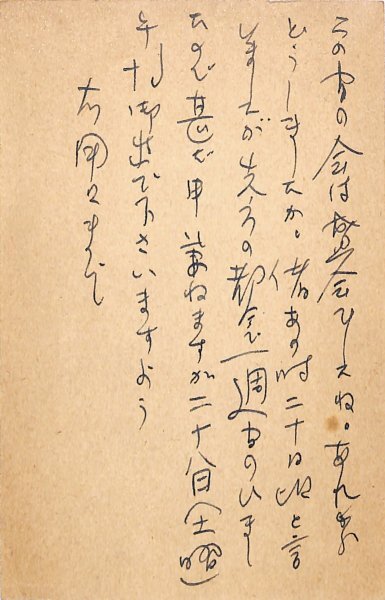 この間の会は盛会でしたね。あれから
どうしましたか。偖あの時二十日頃と言
しましたが先方の都合で一週間のびまし
たので甚だ申し兼ねますが二十八日(土曜)
午後御出で下さいますよう
右用のまで